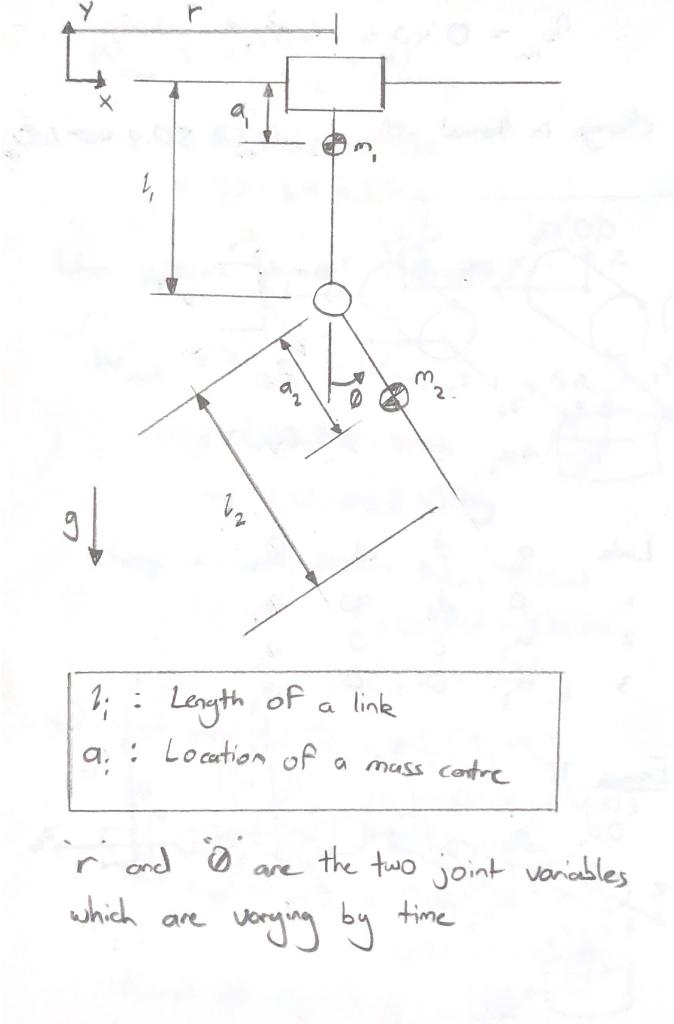 Y
r
x
a₁
m₁
l₁
m₂
a₂
Ø
l₂
g
lᵢ : Length of a link
aᵢ : Location of a mass centre
"r" and "Ø" are the two joint variables
which are varying by time